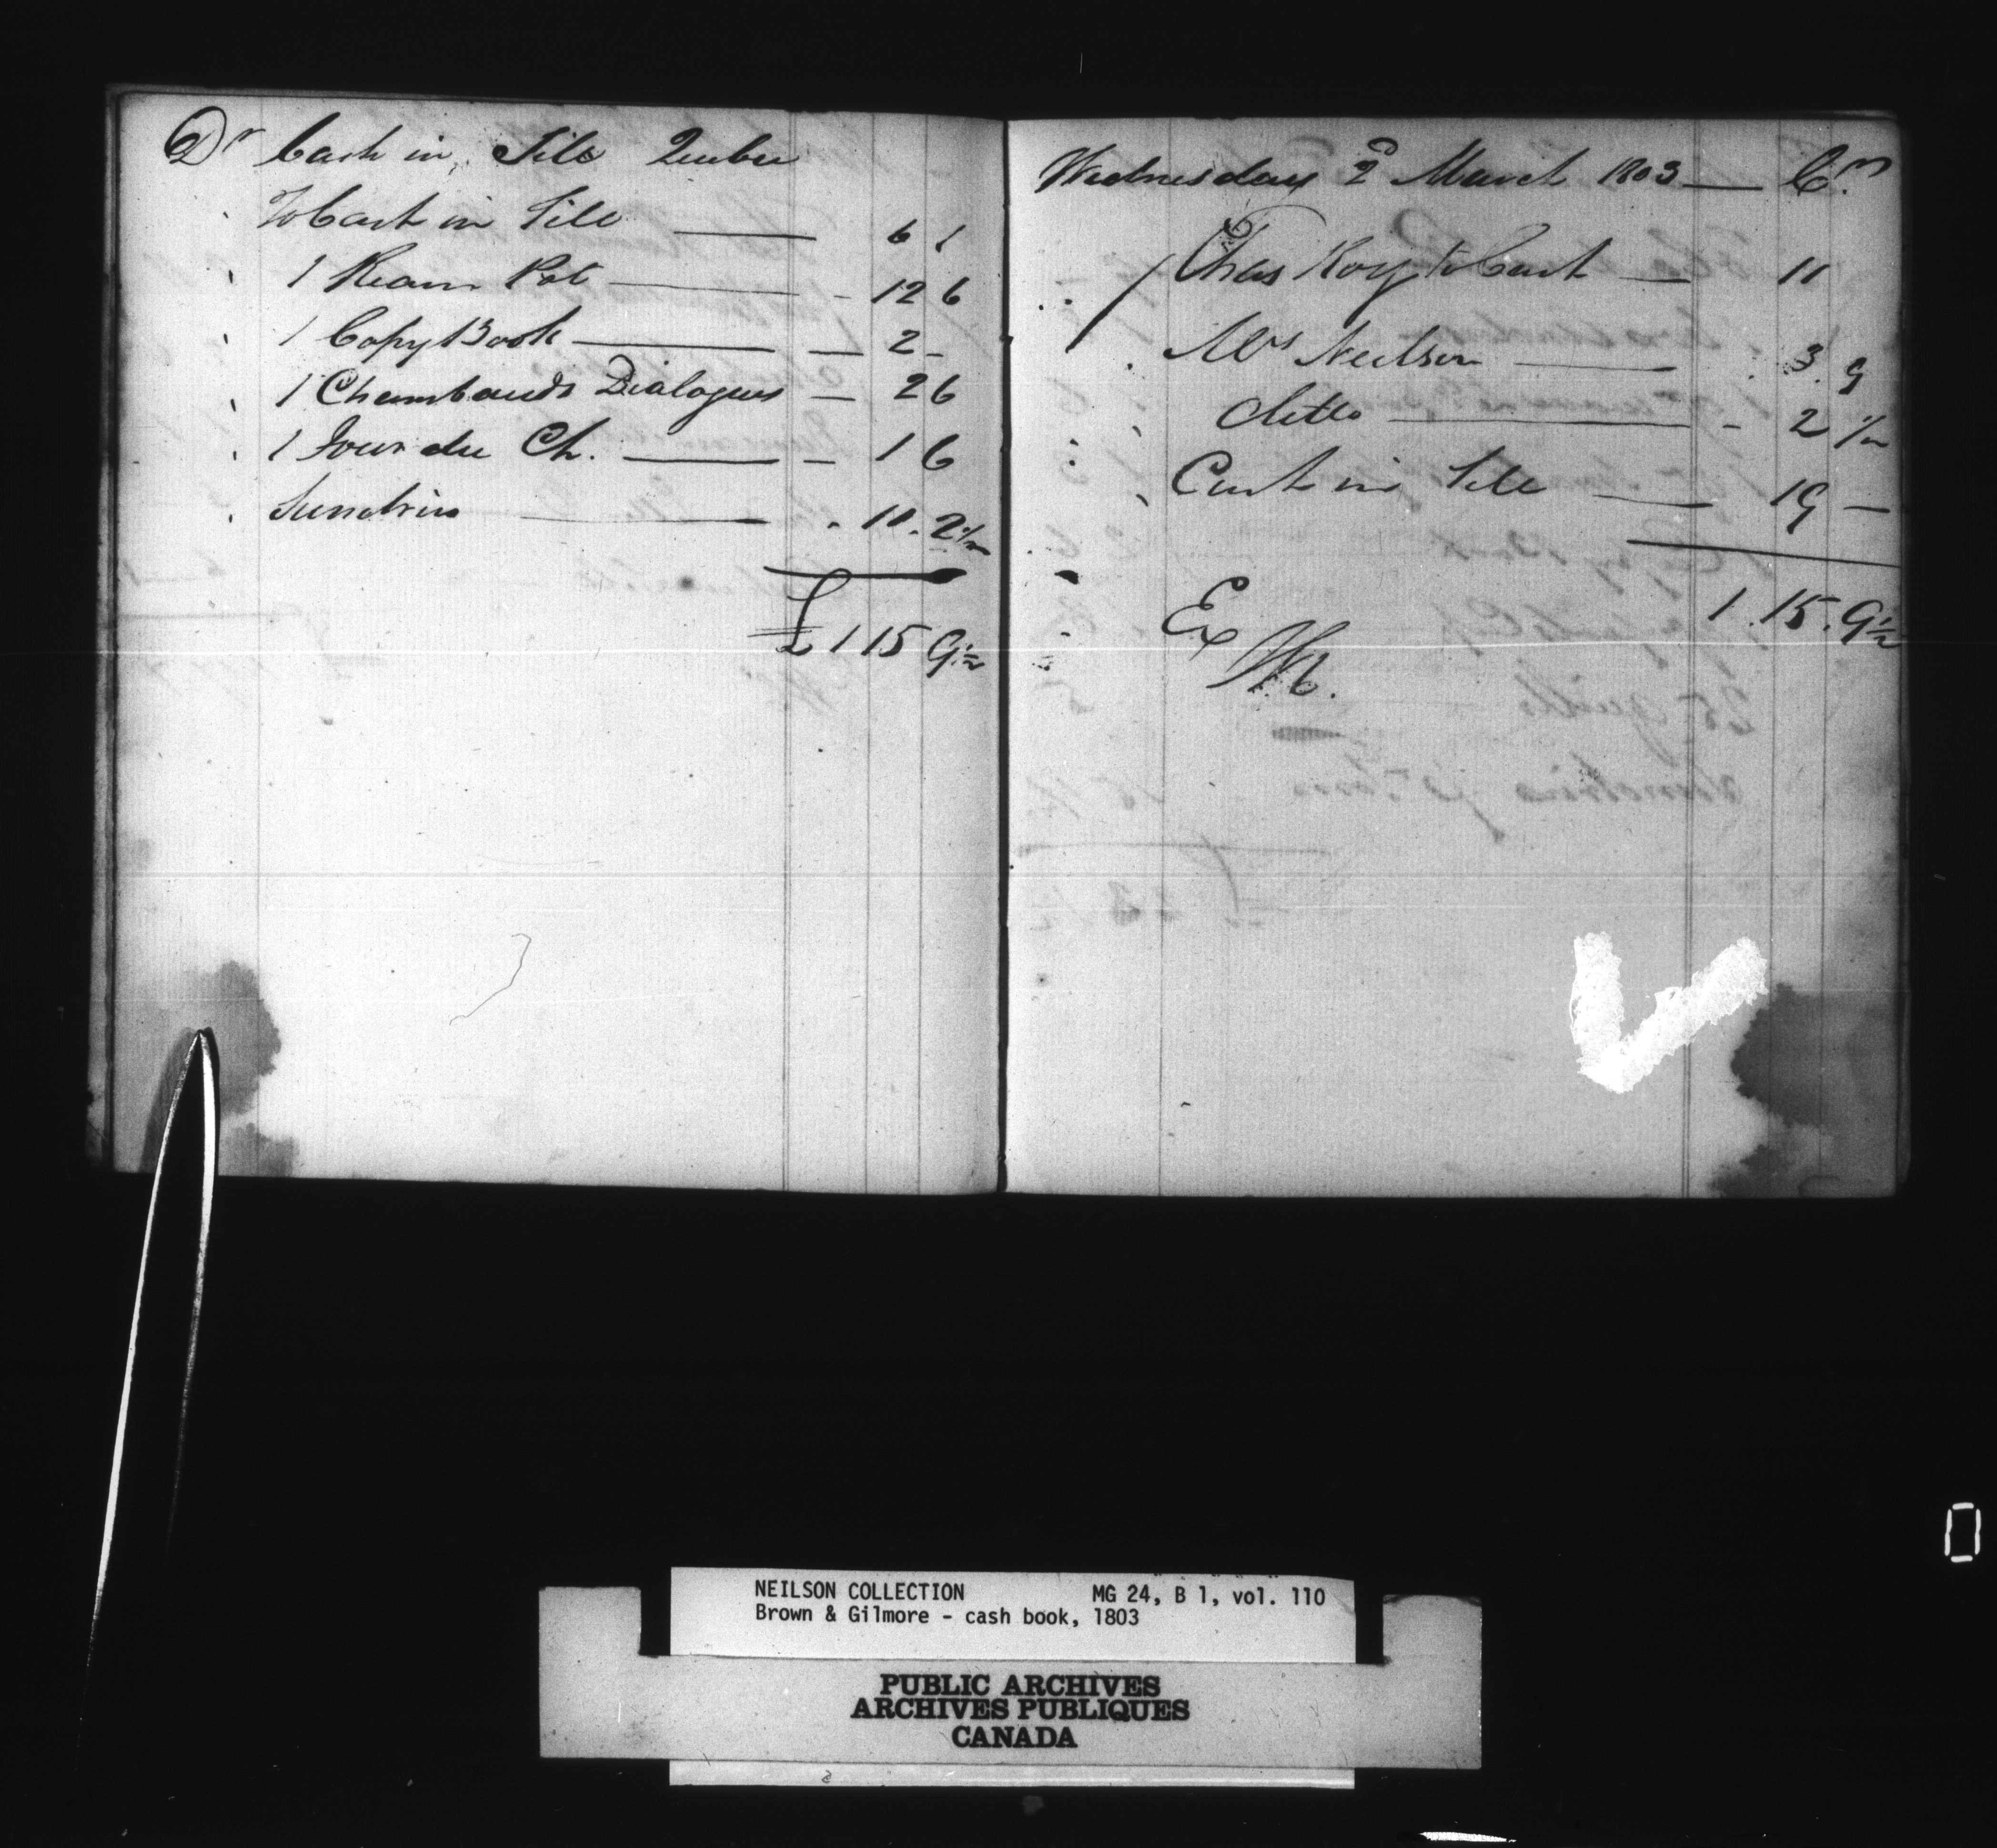 Dr Cash in Till Quebec
To Cash in Till 6 1
1 Ream Pot 12 6
1 Copy Book 2 -
1 Chambauds Dialogues 2 6
1 Jour du Ch. 1 6
Sundries 11. 2 1/2
£ 1 15 9 1/2
Wednesday 2d March 1803 Cr.
Chas Roy to Cash 11
Mrs Neilson 3. 9
ditto 2 1/2
Cash in Till 19 —
1. 15. 9 1/2
Ex
NEILSON COLLECTION MG 24, B 1, vol. 110
Brown & Gilmore - cash book, 1803
PUBLIC ARCHIVES
ARCHIVES PUBLIQUES
CANADA